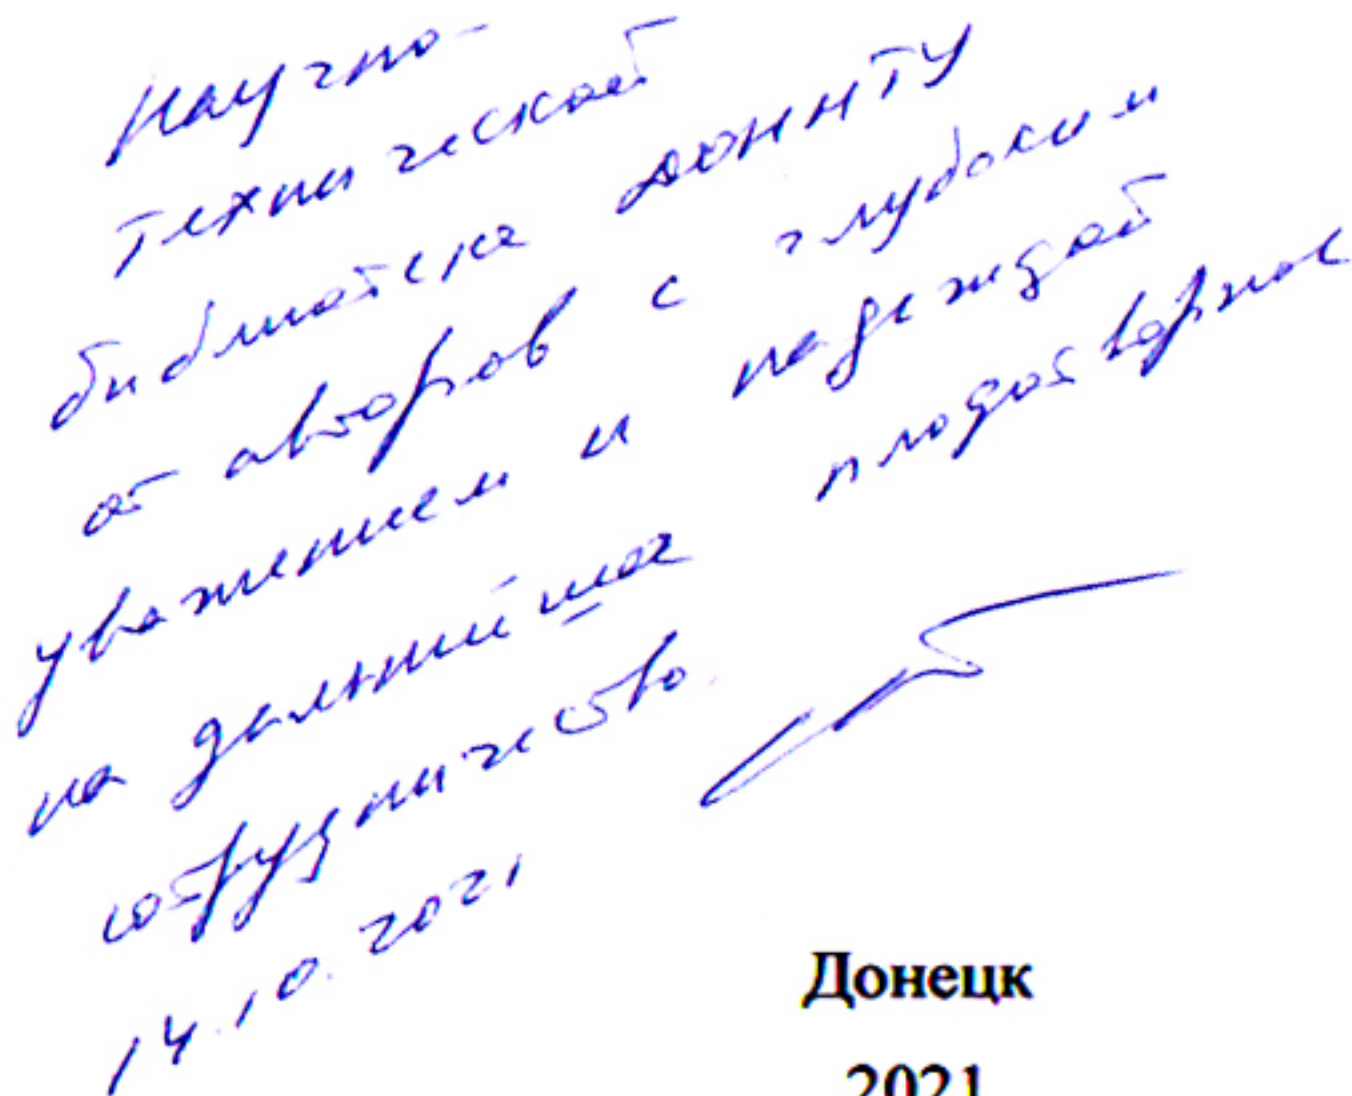 Научно-
технической
библиотеке ДОННТУ
от авторов с глубоким
уважением и надеждой
на дальнейшее плодотворное
сотрудничество.
14.10.2021
Донецк
2021